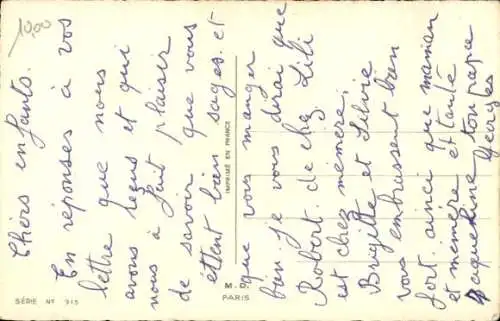 10,00
Chers enfants.
En réponses à vos
lettre que nous
avons reçus et qui
nous à fait plaisir
de savoir que vous
ettent bien sages. et
que vous manger
bien je vous dirai que
Robert. de chez Lili
est chez mémère,
Brigitte et Silvie
vous embrassent bien
fort. ainci que maman
et mémère et tante
Jaqueline ton papa
Georges
IMPRIMÉ EN FRANCE
M. D.
PARIS
SÉRIE No 315